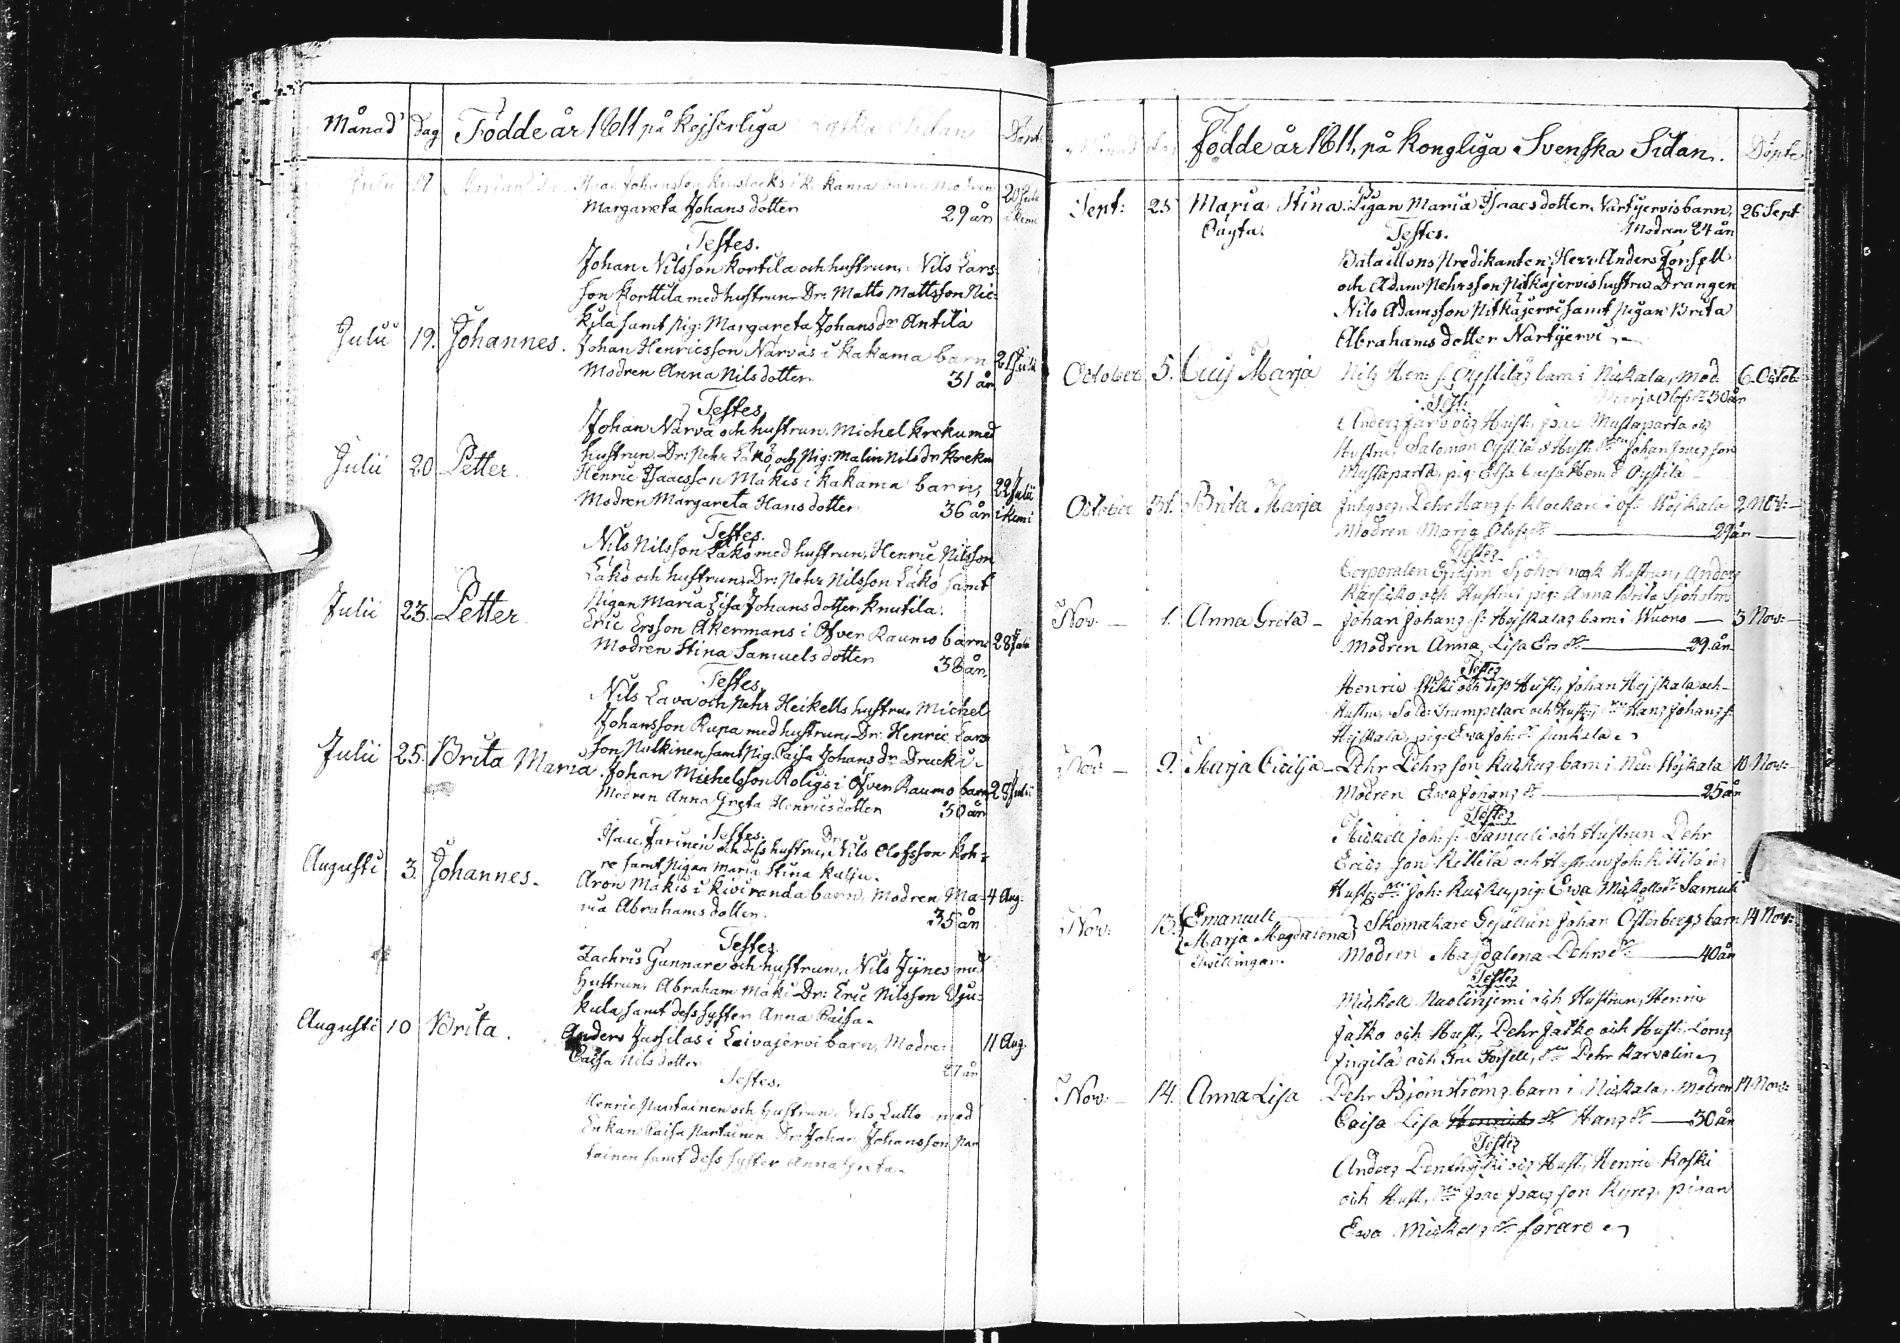 Månad Dag Födde år 1811 på Kejserliga Ryska Sidan Döpt
Julii 17 Isac Johansson i Kakama barn, Modren 20 Julii
Margareta Johansdotter 29 år i Kemi
Testes.
Johan Nilsson Korttila och hustrun, Nils Lars-
son Korttila med hustrun Dr: Matts Mattsson Nic-
kila samt pig: Margareta Johansdr Antila
Julii 19. Johannes. Johan Henricsson Närväs i Kakama barn 21 Julii
Modren Anna Nilsdotter 31 år
Testes
Johan Närvä och hustrun, Michel Kreku med
hustrun, Dr: Pehr Läkö och Pig: Malin Nilsdr Kreku
Julii 20 Petter. Henric Isaacsson Mäkis i Kakama barn, 22 Julii
Modren Margareta Hansdotter 36 år i Kemi
Testes.
Nils Nilsson Läkö med hustrun, Henric Nilsson
Läkö och hustrun, Dr: Pehr Nilsson Läkö samt
Pigan Maria Lisa Johansdotter Knutila.
Julii 23. Petter. Eric Ersson Åkermans i Öfver Raumo barn 28 Julii
Modren Stina Samuelsdotter 38 år,
Testes
Nils Lava och Pehr Heikells hustru, Michel
Johansson Rupa med hustrun, Dr: Henric Lars-
son Nulkinen samt Pig: Caisa Johansdr Drucki.
Julii 25. Brita Maria. Johan Michelsson Roligs i Öfver Raumo barn 28 Julii
Modren Anna Greta Henricsdotter 30 år
Testes.
Isaac Jarinen och dess hustru, Dr Nils Olofsson Koh-
re samt Pigan Maria Stina Kalju.
Augusti 3. Johannes. Aron Mäkis i Kiviranda barn, Modren Ma- 4 Aug.
ria Abrahamsdotter. 35 år
Testes
Zachris Gunnare och hustrun, Nils Jynes med
hustrun, Abraham Mäki Dr: Eric Nilsson Vju-
kula samt dess syster Anna Caisa.
Augusti 10 Brita. Anders Jussilas i Laivajervi barn, Modren 11 Aug.
Caisa Nilsdotter 27 år
Testes.
Henric Partainen och hustrun, Nils Lutto med
Enkan Caisa Partainen, Dr Johan Johansson Par-
tainen samt dess syster Anna Greta.
Månad Dag Födde år 1811, på Kongliga Svenska Sidan. Döpte
Sept: 25 Maria Stina Pigan Maria Isaacsdotter Närtjervis barn, 26 Sept
Oägta. Modren 24 år
Testes.
Bataillons Predikanten, Herr Anders Forsell
och Adam Pehrsson Pitkäjervis hustru Drängen
Nils Adamsson Pitkäjervi samt pigan Brita
Abrahamsdotter Närtjervi.
October 5. Caisj Marja Nilz Hen: s: Oystiläz barn i Nickala, Mod. 6 Octob:
Marja Olofs dr 30 år
Test:
Anders Järv och Hust: Isac Mustaparta och
Hustru, Salomon Oystila o Hust: Johan Isacz son
Mustaparta, pig: Elsa Caisa Hen: dr Oystila
October 31. Brita Marja Pehr Hanz s: Klockare i Öf: Wojkala 2 Nov:
Modren Marja Olofs dr 29 år
Testez
Corporalen Sjöholm och Hustrun, Anders
Karsiko och Hustru, pig: Anna Brita Sjöholm
Nov: 1. Anna Greta Johan Johanz s: Hojskalaz barn i Wuono 3 Nov:
Modren Anna Lisa Ers dr 29 år
Testez
Henric och dess Hust: Johan Hojskala och
Hustru, Sold: Trumpetare och Hust: Hanz Johanz s:
Hojskala, pig: Ewa Joh: dr Junkala
Nov 9. Marja Cicilja Pehr Pehrz son Kuckuz barn i Ned: Wojkala 10 Nov:
Modren Ewa Johanz dr 25 år
Testez
Mickell Joh: s: Samuli och Hustrun Pehr
Ericz son Kittilä och Hustrun
Hust: Joh: Kucku, pig: Ewa Mickels dr Samuli
Nov: 13. Emanuel Marja Magdalena Skomakare Gesällen Johan Österbergs barn 14 Nov:
Tvillingar. Modren Magdalena Pehrs dr 40 år
Testez
Mickell Naolinjemi och Hustrun, Henric
Jatko och Hust: Pehr Jatko och Hust: Lorenz
Ingilä och Fru Forsell, Pehr Karvalin
Nov: 14. Anna Lisa Pehr Björnströmz barn i Nickala, Modren 17 Nov:
Caisa Lisa Henrics dr Hanz dr 30 år
Testez
Anders och Hust: Henric Koski
och Hust, Isac Isacz son Kyröz, pigan
Ewa Mickelz dr Förare